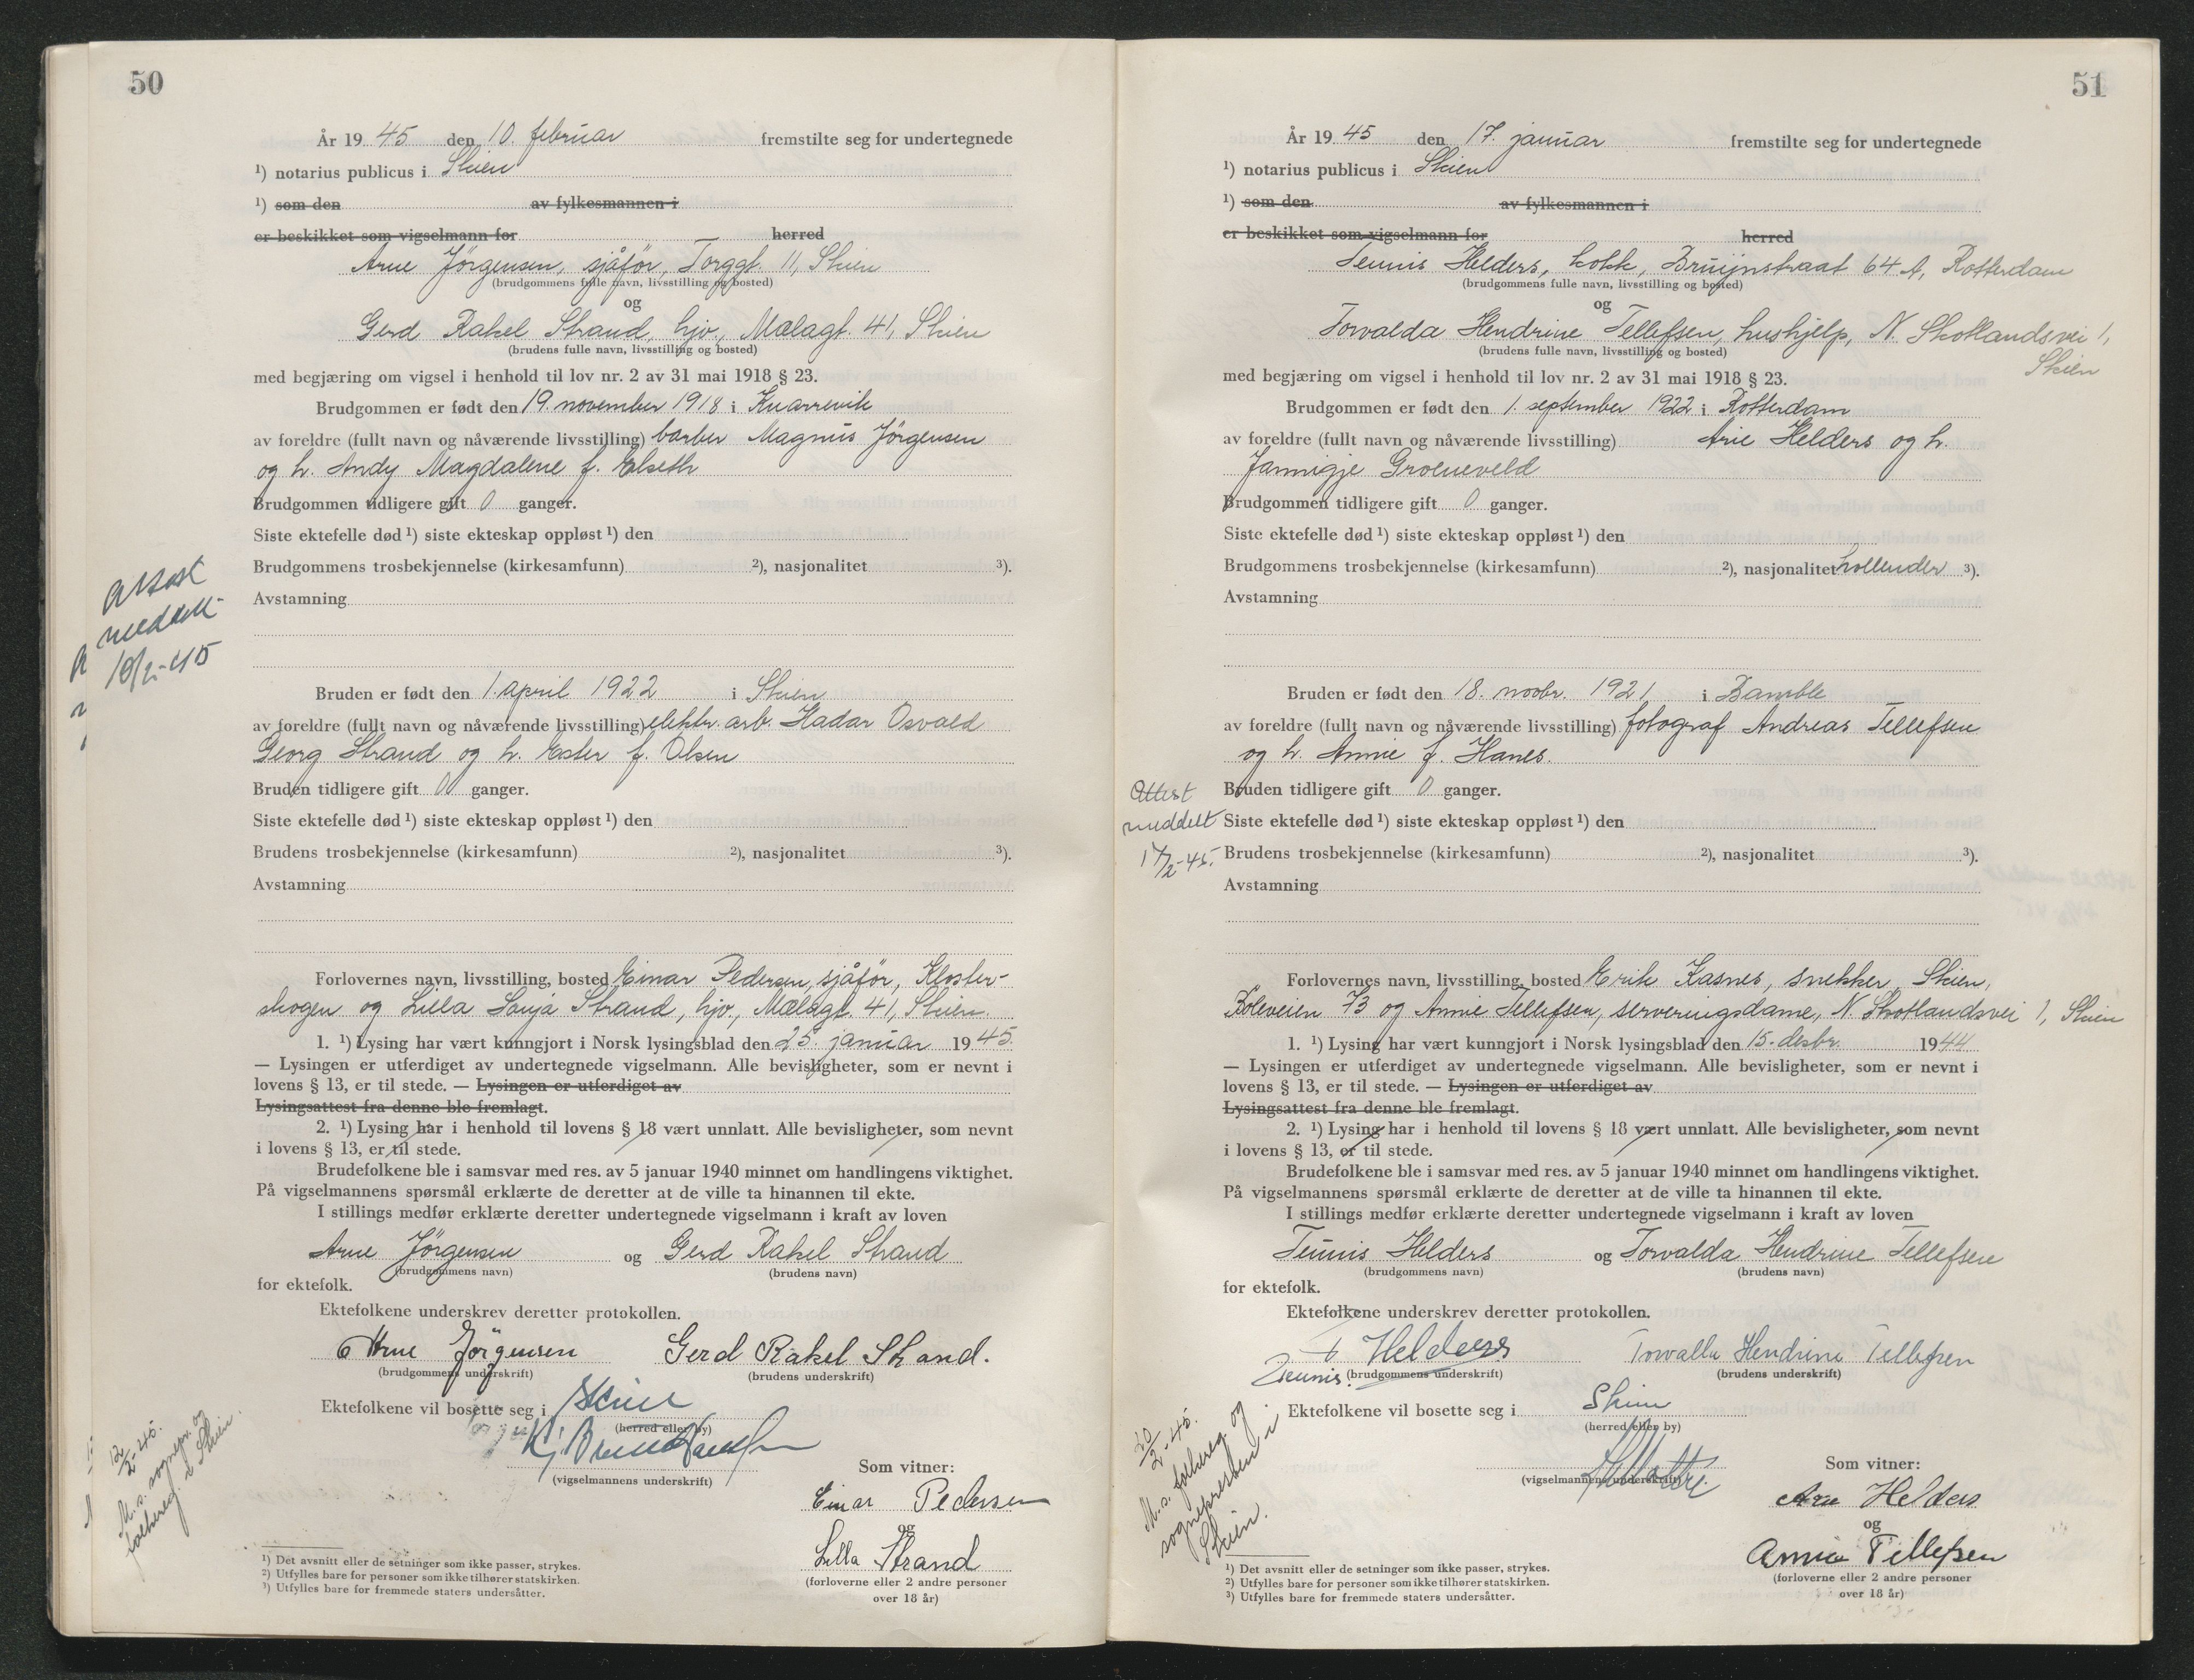 50
År 19 45 den 10. februar fremstilte seg for undertegnede
¹) notarius publicus i Skien
¹) som den av fylkesmannen i
er beskikket som vigselmann for herred
Arne Jörgensen, sjåför, Torggt. 11, Skien
(brudgommens fulle navn, livsstilling og bosted)
og
Gerd Rakel Strand, hjv., Mælagt. 41, Skien
(brudens fulle navn, livsstilling og bosted)
med begjæring om vigsel i henhold til lov nr. 2 av 31 mai 1918 § 23.
Brudgommen er født den 19. november 1918 i Knarrevik
av foreldre (fullt navn og nåværende livsstilling) barber Magnus Jörgensen
og h. Andy Magdalene f. Elseth
Brudgommen tidligere gift 0 ganger.
Siste ektefelle død ¹) siste ekteskap oppløst ¹) den
Brudgommens trosbekjennelse (kirkesamfunn) ²), nasjonalitet ³).
Avstamning
Attest
meddelt
10/2-45
Bruden er født den 1. april 1922 i Skien
av foreldre (fullt navn og nåværende livsstilling) elektr. arb. Hadar Osvald
Georg Strand og h. Ester f. Olsen
Bruden tidligere gift 0 ganger.
Siste ektefelle død ¹) siste ekteskap oppløst ¹) den
Brudens trosbekjennelse (kirkesamfunn) ²), nasjonalitet ³).
Avstamning
Forlovernes navn, livsstilling, bosted Einar Pedersen, sjåför, Kloster-
skogen og Lilla Sonja Strand, hjv., Mælagt. 41, Skien.
1. ¹) Lysing har vært kunngjort i Norsk lysingsblad den 25. januar 1945.
— Lysingen er utferdiget av undertegnede vigselmann. Alle bevisligheter, som er nevnt i
lovens § 13, er til stede. — Lysingen er utferdiget av
Lysingsattest fra denne ble fremlagt.
2. ¹) Lysing har i henhold til lovens § 18 vært unnlatt. Alle bevisligheter, som nevnt
i lovens § 13, er til stede.
Brudefolkene ble i samsvar med res. av 5 januar 1940 minnet om handlingens viktighet.
På vigselmannens spørsmål erklærte de deretter at de ville ta hinannen til ekte.
I stillings medfør erklærte deretter undertegnede vigselmann i kraft av loven
Arne Jörgensen og Gerd Rakel Strand
(brudgommens navn) (brudens navn)
for ektefolk.
Ektefolkene underskrev deretter protokollen.
Arne Jörgensen Gerd Rakel Strand.
(brudgommens underskrift) (brudens underskrift)
Ektefolkene vil bosette seg i Skien
(herred eller by)
(vigselmannens underskrift)
12/2-45.
M.s. sognepr. og
folkereg. i Skien.
Som vitner:
Einar Pedersen
og
Lilla Strand
(forloverne eller 2 andre personer
over 18 år)
¹) Det avsnitt eller de setninger som ikke passer, strykes.
²) Utfylles bare for personer som ikke tilhører statskirken.
³) Utfylles bare for fremmede staters undersåtter.
51
År 19 45 den 17. januar fremstilte seg for undertegnede
¹) notarius publicus i Skien
¹) som den av fylkesmannen i
er beskikket som vigselmann for herred
Teunis Helders, kokk, Bruijnstraat 64 A, Rotterdam
(brudgommens fulle navn, livsstilling og bosted)
og
Torvalda Hendrine Tellefsen, hushjelp, N. Skotlandsvei 1,
Skien
(brudens fulle navn, livsstilling og bosted)
med begjæring om vigsel i henhold til lov nr. 2 av 31 mai 1918 § 23.
Brudgommen er født den 1. september 1922 i Rotterdam
av foreldre (fullt navn og nåværende livsstilling) Arie Helders og h.
Jannigje Groeneveld
Brudgommen tidligere gift 0 ganger.
Siste ektefelle død ¹) siste ekteskap oppløst ¹) den
Brudgommens trosbekjennelse (kirkesamfunn) ²), nasjonalitet hollender ³).
Avstamning
Bruden er født den 18. novbr. 1921 i Bamble
av foreldre (fullt navn og nåværende livsstilling) fotograf Andreas Tellefsen
og h. Annie f. Hanes.
Attest
meddelt
17/2-45.
Bruden tidligere gift 0 ganger.
Siste ektefelle død ¹) siste ekteskap oppløst ¹) den
Brudens trosbekjennelse (kirkesamfunn) ²), nasjonalitet ³).
Avstamning
Forlovernes navn, livsstilling, bosted Erik Kasnes, snekker, Skien,
Böleveien 73 og Annie Tellefsen, serveringsdame, N. Skotlandsvei 1, Skien
1. ¹) Lysing har vært kunngjort i Norsk lysingsblad den 15. desbr. 1944
— Lysingen er utferdiget av undertegnede vigselmann. Alle bevisligheter, som er nevnt i
lovens § 13, er til stede. — Lysingen er utferdiget av
Lysingsattest fra denne ble fremlagt.
2. ¹) Lysing har i henhold til lovens § 18 vært unnlatt. Alle bevisligheter, som nevnt
i lovens § 13, er til stede.
Brudefolkene ble i samsvar med res. av 5 januar 1940 minnet om handlingens viktighet.
På vigselmannens spørsmål erklærte de deretter at de ville ta hinannen til ekte.
I stillings medfør erklærte deretter undertegnede vigselmann i kraft av loven
Teunis Helders og Torvalda Hendrine Tellefsen
(brudgommens navn) (brudens navn)
for ektefolk.
Ektefolkene underskrev deretter protokollen.
Helders Torvalda Hendrine Tellefsen
Teunis. (brudgommens underskrift) (brudens underskrift)
Ektefolkene vil bosette seg i Skien
(herred eller by)
(vigselmannens underskrift)
20/2-45.
M.s. folkereg. og
sognepresten i
Skien.
Som vitner:
Arie Helders
og
Annie Tellefsen
(forloverne eller 2 andre personer
over 18 år)
¹) Det avsnitt eller de setninger som ikke passer, strykes.
²) Utfylles bare for personer som ikke tilhører statskirken.
³) Utfylles bare for fremmede staters undersåtter.